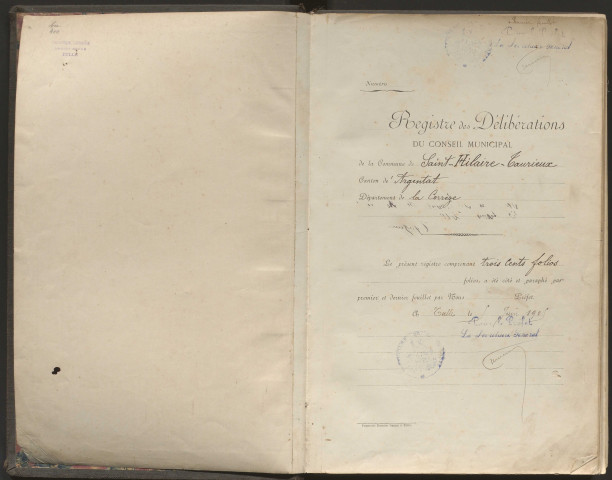 Le Secrétaire Général
Numéro
Registre des Délibérations
DU CONSEIL MUNICIPAL
de la Commune de Saint-Hilaire-Taurieux
Canton de Argentat
Département de la Corrèze
Le présent registre comprenant trois cents folios
folios a été coté et paraphé par
premier et dernier feuillet par Nous
A Tulle le
Pour le Préfet
Le Secrétaire Général